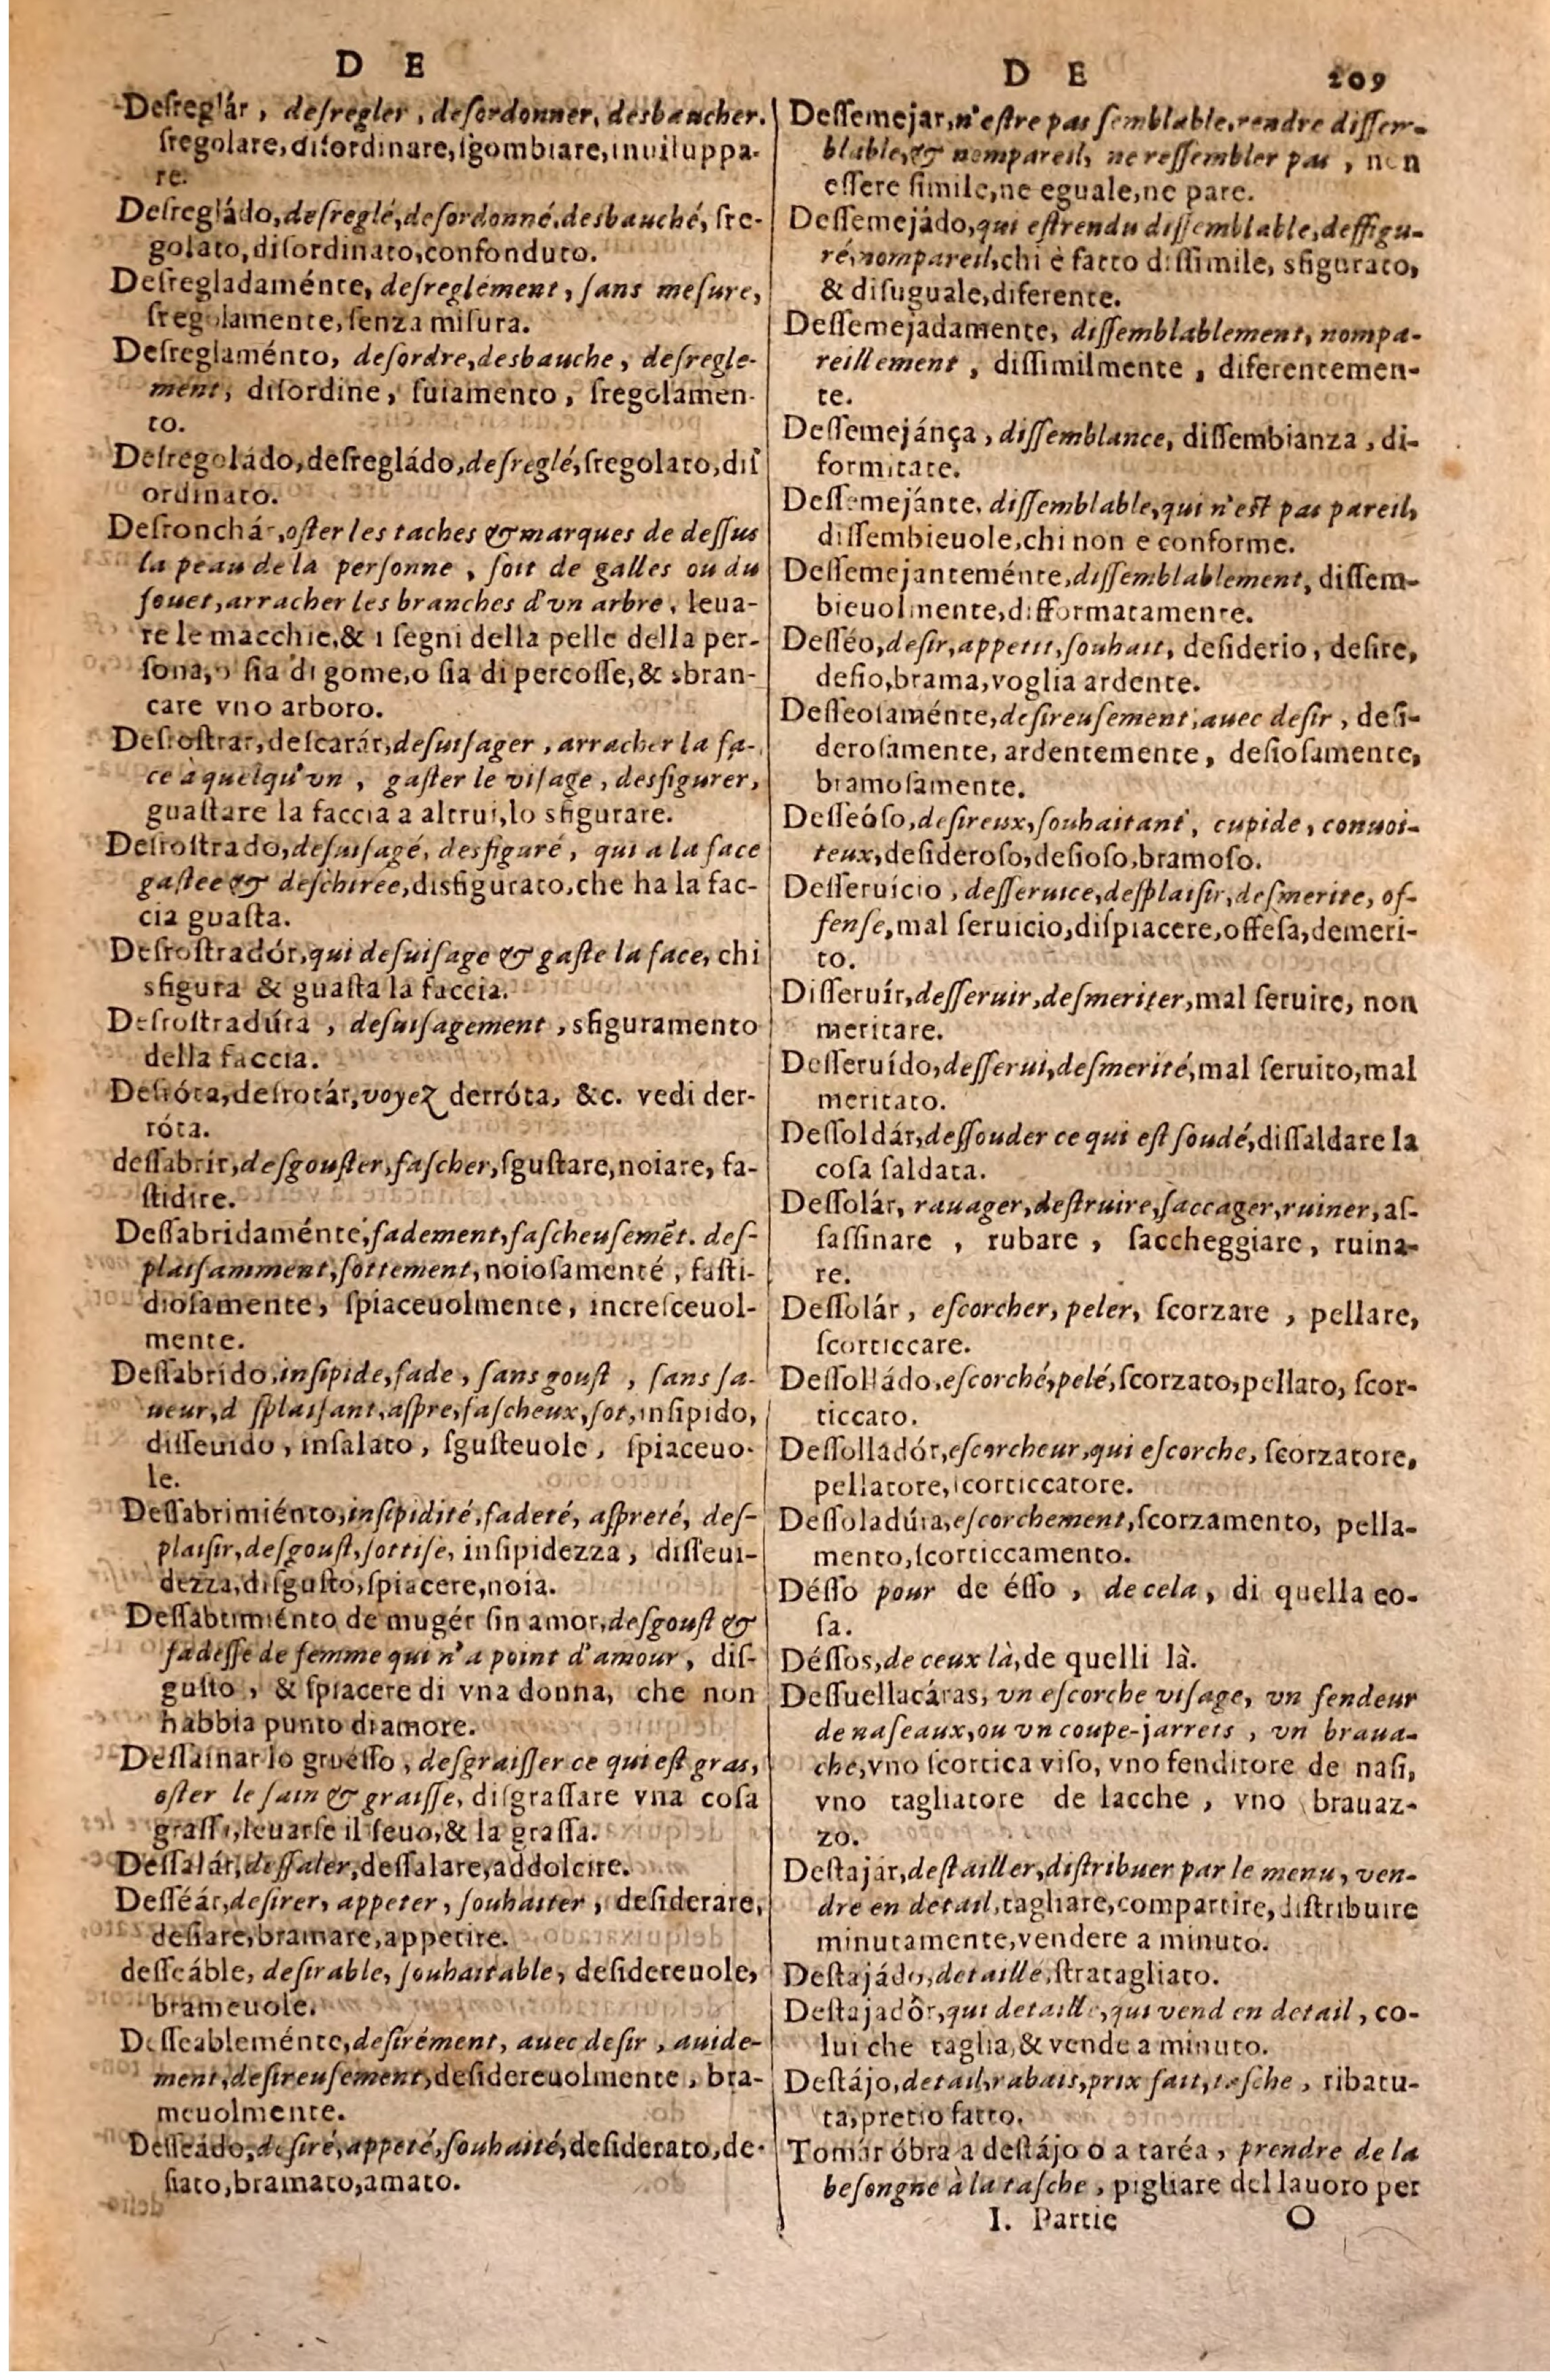 D E
Deſreglár, deſregler, deſordonner, desbaucher.
ſregolare, diſordinare, ſgombiare, inuiluppa-
re.
Deſregládo, deſreglé, deſordonné, desbauché, ſre-
golato, diſordinato, confonduto.
Deſregladaménte, deſreglément, ſans meſure,
ſregolamente, ſenza miſura.
Deſreglaménto, deſordre, desbauche, deſregle-
ment, diſordine, ſuiamento, ſregolamen-
to.
Deſregoládo, deſregládo, deſreglé, ſregolato, diſ
ordinato.
Deſronchár, oſter les taches & marques de deſſus
la peau de la perſonne, ſoit de galles ou du
fouet, arracher les branches d'vn arbre, leua-
re le macchie, & i ſegni della pelle della per-
ſona, o ſia di gome, o ſia di percoſſe, & sbran-
care vno arboro.
Deſroſtrar, deſcarár, deſuiſager, arracher la fa-
ce à quelqu'vn, gaſter le viſage, desfigurer,
guaſtare la faccia a altrui, lo sfigurare.
Deſroſtrado, deſuiſagé, desfiguré, qui a la face
gaſtee & deſchiree, disfigurato, che ha la fac-
cia guaſta.
Deſroſtradór, qui deſuiſage & gaſte la face, chi
sfigura & guaſta la faccia.
Deſroſtradúra, deſuiſagement, sfiguramento
della faccia.
Deſróta, deſrotár, voyez derróta, &c. vedi der-
róta.
deſſabrír, deſgouſter, faſcher, ſguſtare, noiare, fa-
ſtidire.
Deſſabridaménte, fadement, faſcheuſemẽt. deſ-
plaiſamment, ſottement, noioſamenté, faſti-
dioſamente, ſpiaceuolmente, increſceuol-
mente.
Deſſabrído, inſipide, fade, ſans gouſt, ſans ſa-
ueur, d ſplaiſant, aſpre, faſcheux, ſot, inſipido,
diſſeuido, inſalato, ſguſteuole, ſpiaceuo-
le.
Deſſabrimiénto, inſipidité, fadeté, aſpreté, deſ-
plaiſir, deſgouſt, ſottiſe, inſipidezza, diſſeui-
dezza, diſguſto, ſpiacere, noia.
Deſſabrimiénto de mugér ſin amor, deſgouſt &
fadeſſe de femme qui n'a point d'amour, diſ-
guſto, & ſpiacere di vna donna, che non
habbia punto di amore.
Deſſainar lo gruéſſo, deſgraiſſer ce qui eſt gras,
oſter le ſain & graiſſe, diſgraſſare vna coſa
graſſa, leuarſe il ſeuo, & la graſſa.
Deſſalár, deſſaler, deſſalare, addolcire.
Deſſéár, deſirer, appeter, ſouhaiter, deſiderare,
deſiare, bramare, appetire.
deſſeáble, deſirable, ſouhaitable, deſidereuole,
brameuole.
Deſſeableménte, deſirément, auec deſir, auide-
ment, deſireuſement, deſidereuolmente, bra-
meuolmente.
Deſſeádo, deſiré, appeté, ſouhaité, deſiderato, de-
ſiato, bramato, amato.
D E 209
Deſſemejar, n'eſtre pas ſemblable, rendre diſſem-
blable, & nompareil, ne reſſembler pas, non
eſſere ſimile, ne eguale, ne pare.
Deſſemejádo, qui eſt rendu diſſemblable, deffigu-
ré, nompareil, chi è fatto diſſimile, sfigurato,
& diſuguale, diferente.
Deſſemejadamente, diſſemblablement, nompa-
reillement, diſſimilmente, diferentemen-
te.
Deſſemejánça, diſſemblance, diſſembianza, di-
formitate.
Deſſemejánte, diſſemblable, qui n'eſt pas pareil,
diſſembieuole, chi non e conforme.
Deſſemejanteménte, diſſemblablement, diſſem-
bieuolmente, difformatamente.
Deſſéo, deſir, appetit, ſouhait, deſiderio, deſire,
deſio, brama, voglia ardente.
Deſſeoſaménte, deſireuſement, auec deſir, deſi-
deroſamente, ardentemente, deſioſamente,
bramoſamente.
Deſſeóſo, deſireux, ſouhaitant, cupide, conuoi-
teux, deſideroſo, deſioſo, bramoſo.
Deſſeruício, deſſeruice, deſplaiſir, deſmerite, of-
fenſe, mal ſeruicio, diſpiacere, offeſa, demeri-
to.
Diſſeruír, deſſeruir, deſmeriter, mal ſeruire, non
meritare.
Deſſeruído, deſſerui, deſmerité, mal ſeruito, mal
meritato.
Deſſoldár, deſſouder ce qui eſt ſoudé, diſſaldare la
coſa ſaldata.
Deſſolár, rauager, deſtruire, ſaccager, ruiner, aſ-
ſaſſinare, rubare, ſaccheggiare, ruina-
re.
Deſſolár, eſcorcher, peler, ſcorzare, pellare,
ſcorticcare.
Deſſolládo, eſcorché, pelé, ſcorzato, pellato, ſcor-
ticcato.
Deſſolladór, eſcorcheur, qui eſcorche, ſcorzatore,
pellatore, ſcorticcatore.
Deſſoladúra, eſcorchement, ſcorzamento, pella-
mento, ſcorticcamento.
Déſſo pour de éſſo, de cela, di quella co-
ſa.
Déſſos, de ceux là, de quelli là.
Deſſuellacáras, vn eſcorche viſage, vn fendeur
de naſeaux, ou vn coupe-jarrets, vn braua-
che, vno ſcortica viſo, vno fenditore de naſi,
vno tagliatore de lacche, vno brauaz-
zo.
Deſtajár, deſtailler, diſtribuer par le menu, ven-
dre en detail, tagliare, compartire, diſtribuire
minutamente, vendere a minuto.
Deſtajádo, detaillé, ſtratagliato.
Deſtajadôr, qui detaille, qui vend en detail, co-
lui che taglia, & vende a minuto.
Deſtájo, detail, rabais, prix fait, taſche, ribatu-
ta, pretio fatto.
Tomár óbra a deſtájo o a taréa, prendre de la
beſongne à la taſche, pigliare del lauoro per
I. Partie O